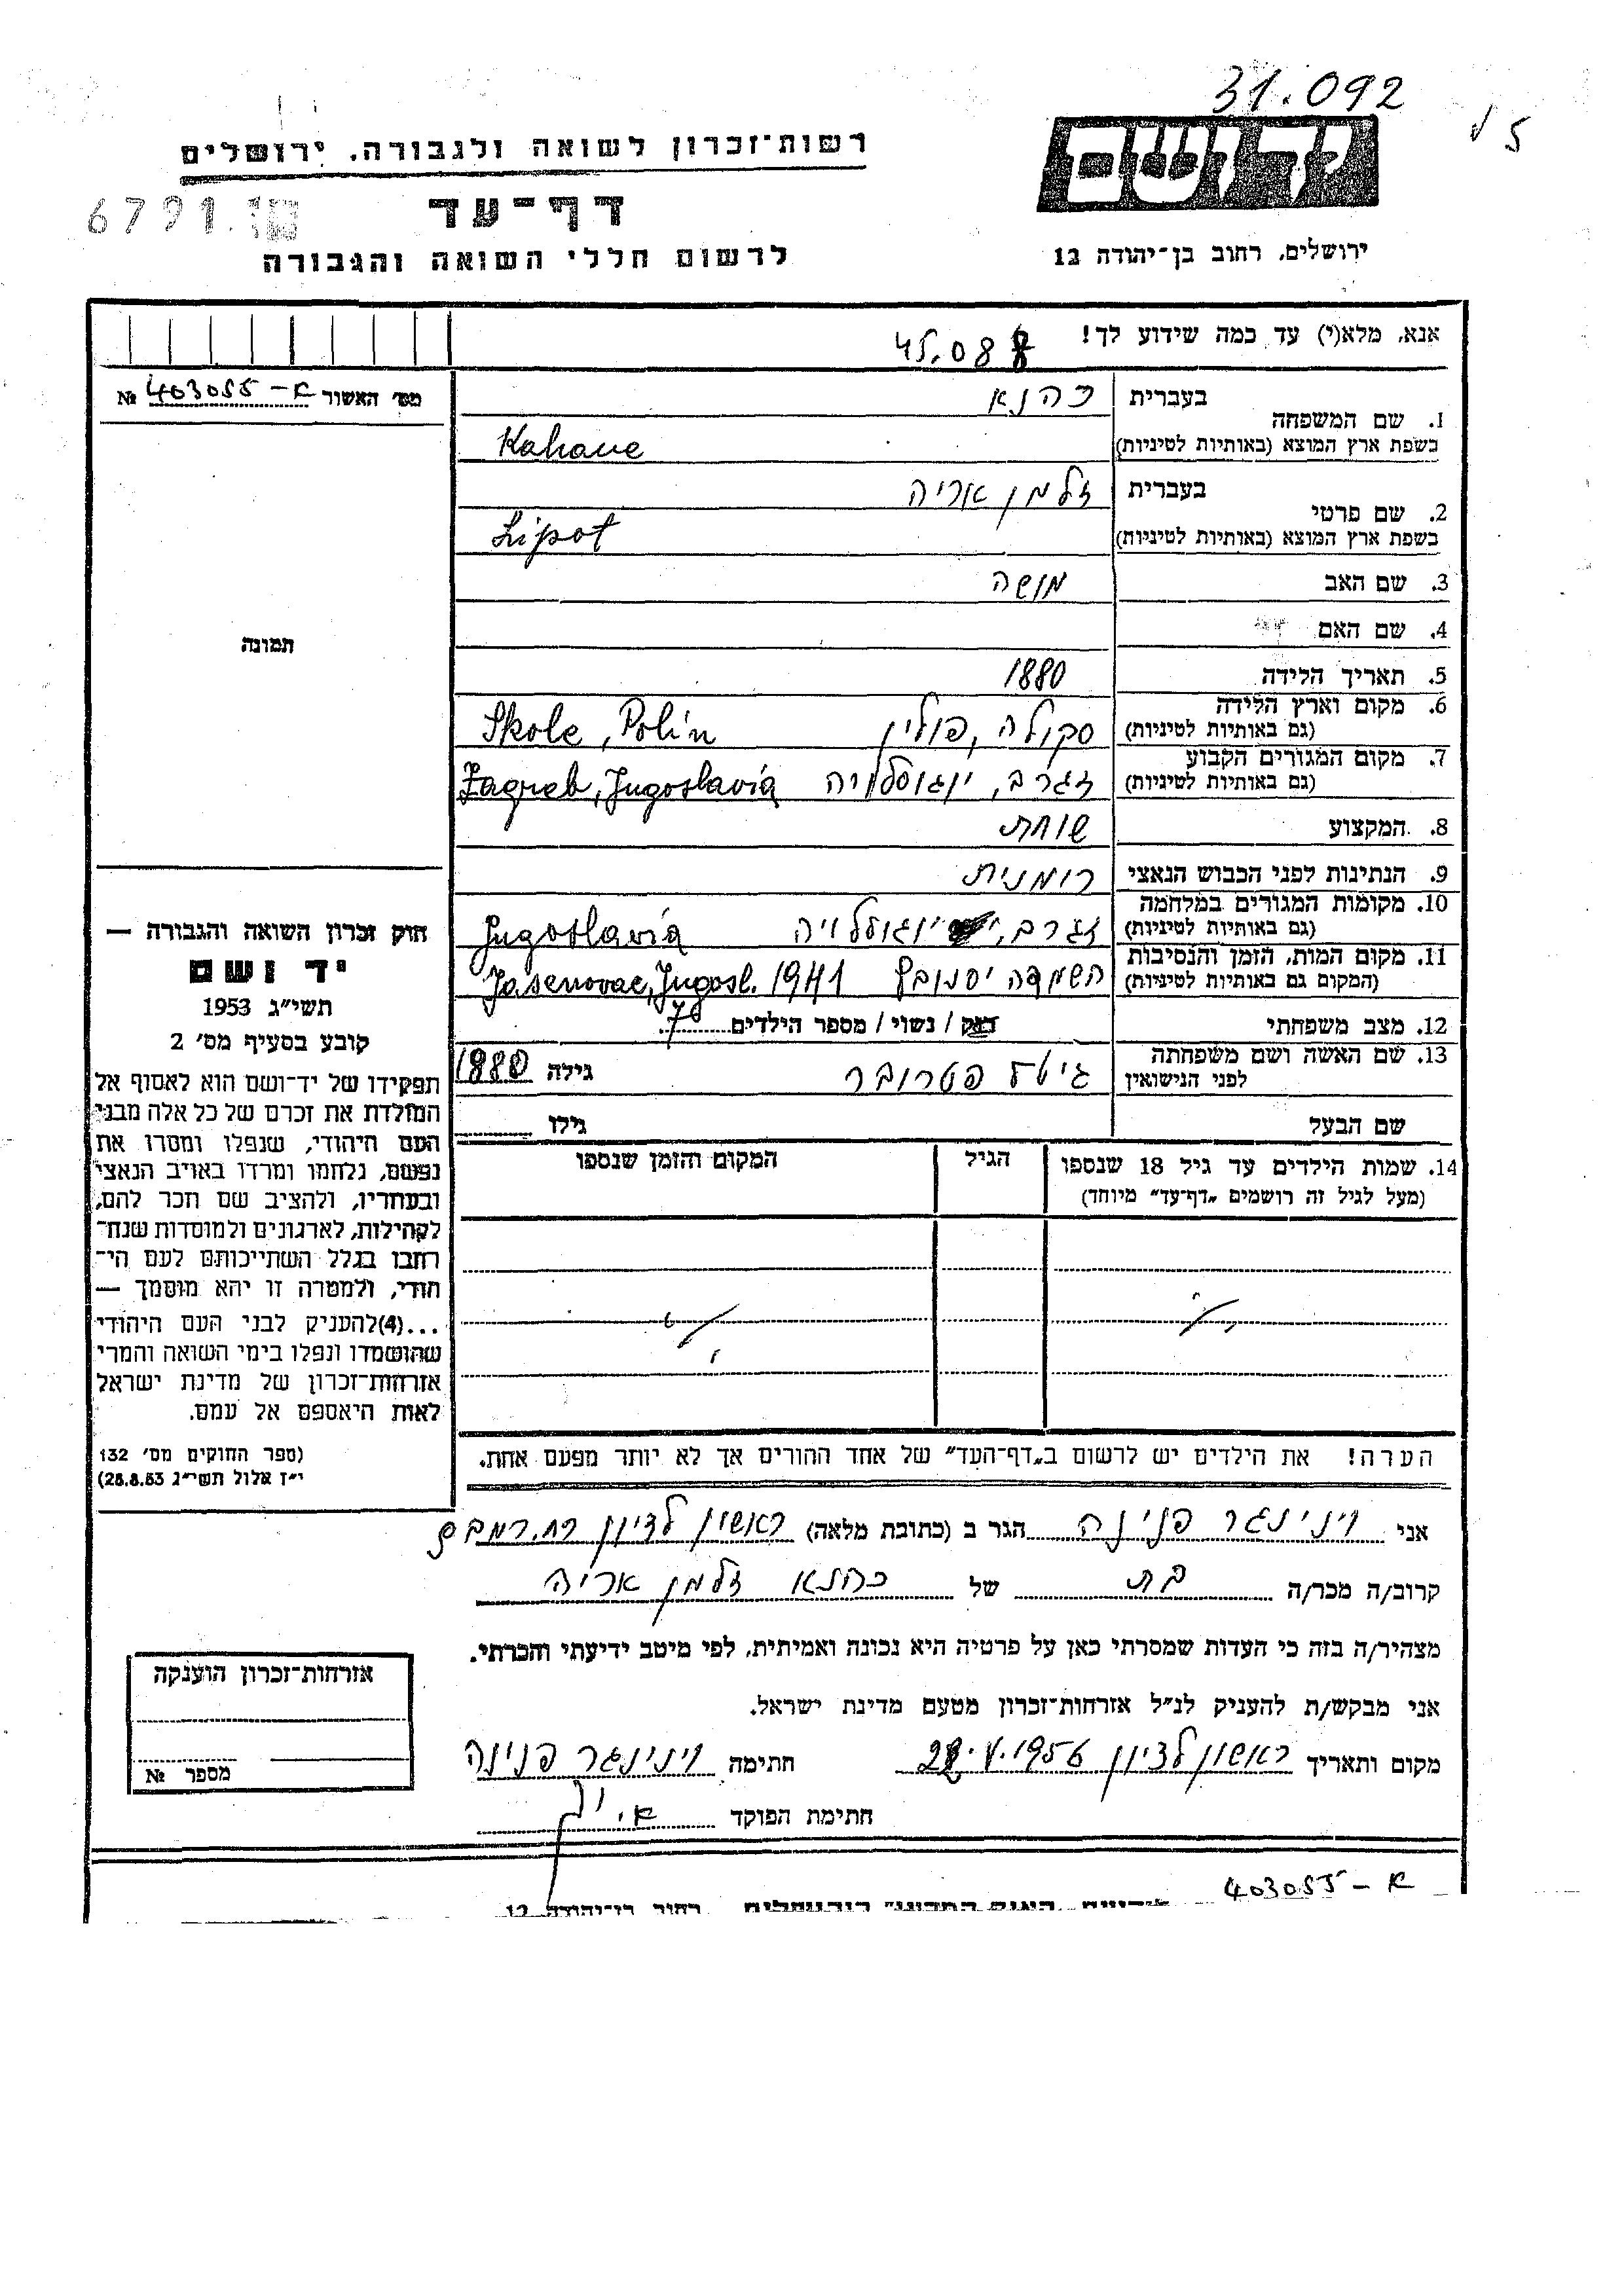 31.092
5
יד ושם
רשות־זכרון לשואה ולגבורה. ירושלים
דף־עד
6791
לרשום חללי השואה והגבורה
ירושלים, רחוב בן־יהודה 12
אנא, מלא(י) עד כמה שידוע לך!
מס׳ האשור № 403055 - א
1. שם המשפחה
בעברית כהנא
בשפת ארץ המוצא (באותיות לטיניות) Kahane
2. שם פרטי
בעברית זלמן אריה
בשפת ארץ המוצא (באותיות לטיניות) Lipot
3. שם האב מושה
4. שם האם
5. תאריך הלידה 1880
6. מקום וארץ הלידה
(גם באותיות לטיניות) סקולה, פולין Skole, Polín
7. מקום המגורים הקבוע
(גם באותיות לטיניות) זגרב, יוגוסלויה Zagreb, Jugoslavia
8. המקצוע שוחת
9. הנתינות לפני הכבוש הנאצי רומנית
10. מקומות המגורים במלחמה
(גם באותיות לטיניות) זגרב, יוגוסלויה Jugoslavia
11. מקום המות, הזמן והנסיבות
(המקום גם באותיות לטיניות) השמדה יסנובץ Jasenovac, Jugosl. 1941
12. מצב משפחתי רווק / נשוי / מספר הילדים 7
13. שם האשה ושם משפחתה
לפני הנישואין פטרובר גילה 1880
שם הבעל גילו
14. שמות הילדים עד גיל 18 שנספו הגיל המקום והזמן שנספו
(מעל לגיל זה רושמים „דף־עד״ מיוחד)
הערה! את הילדים יש לרשום ב„דף־העד״ של אחד ההורים אך לא יותר מפעם אחת.
תמונה
חוק זכרון השואה והגבורה —
יד ושם
תשי״ג 1953
קובע בסעיף מס׳ 2
תפקידו של יד־ושם הוא לאסוף אל
המולדת את זכרם של כל אלה מבני
העם היהודי, שנפלו ומסרו את
נפשם, נלחמו ומרדו באויב הנאצי
ובעוזריו, ולהציב שם וזכר להם,
לקהילות, לארגונים ולמוסדות שנח־
רבו בגלל השתייכותם לעם הי־
הודי, ולמטרה זו יהא מוסמך —
...(4)להעניק לבני העם היהודי
שהושמדו ונפלו בימי השואה והמרי
אזרחות־זכרון של מדינת ישראל
לאות היאספם אל עמם.
(ספר החוקים מס׳ 132
י״ז אלול תשי״ג 28.8.53)
אני וינינגר פנינה הגר ב (כתובת מלאה) ראשון לציון רח. רמב
קרוב/ה מכר/ה בת של כהנא זלמן אריה
מצהיר/ה בזה כי העדות שמסרתי כאן על פרטיה היא נכונה ואמיתית, לפי מיטב ידיעתי והכרתי.
אני מבקש/ת להעניק לנ״ל אזרחות־זכרון מטעם מדינת ישראל.
מקום ותאריך ראשון לציון .V.1956 חתימה וינינגר פנינה
חתימת הפוקד
אזרחות־זכרון הוענקה
מספר №
403055 - א